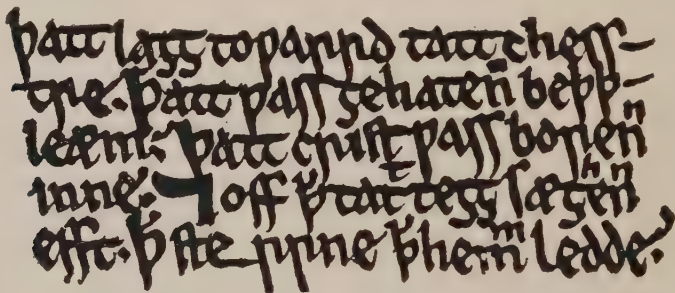 Þatt laȝȝ toƿarrd tatt chess-
tre. Þatt ƿass ȝehatenn beþþ-
leæm; Þatt crist ƿass borenn
inne. ⁊ off þ̕ tatt teȝȝ sæȝhenn
efft. Þ̕ sterrne þ̕ hemm ledde.